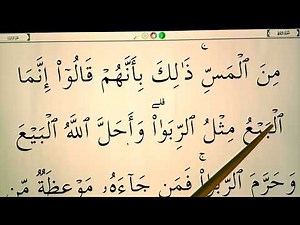 مِنَ ٱلْمَسِّ ۚ ذَٰلِكَ بِأَنَّهُمْ قَالُوٓا۟ إِنَّمَا
ٱلْبَيْعُ مِثْلُ ٱلرِّبَوٰا۟ ۗ وَأَحَلَّ ٱللَّهُ ٱلْبَيْعَ
وَحَرَّمَ ٱلرِّبَوٰا۟ ۚ فَمَن جَآءَهُۥ مَوْعِظَةٌ مِّن